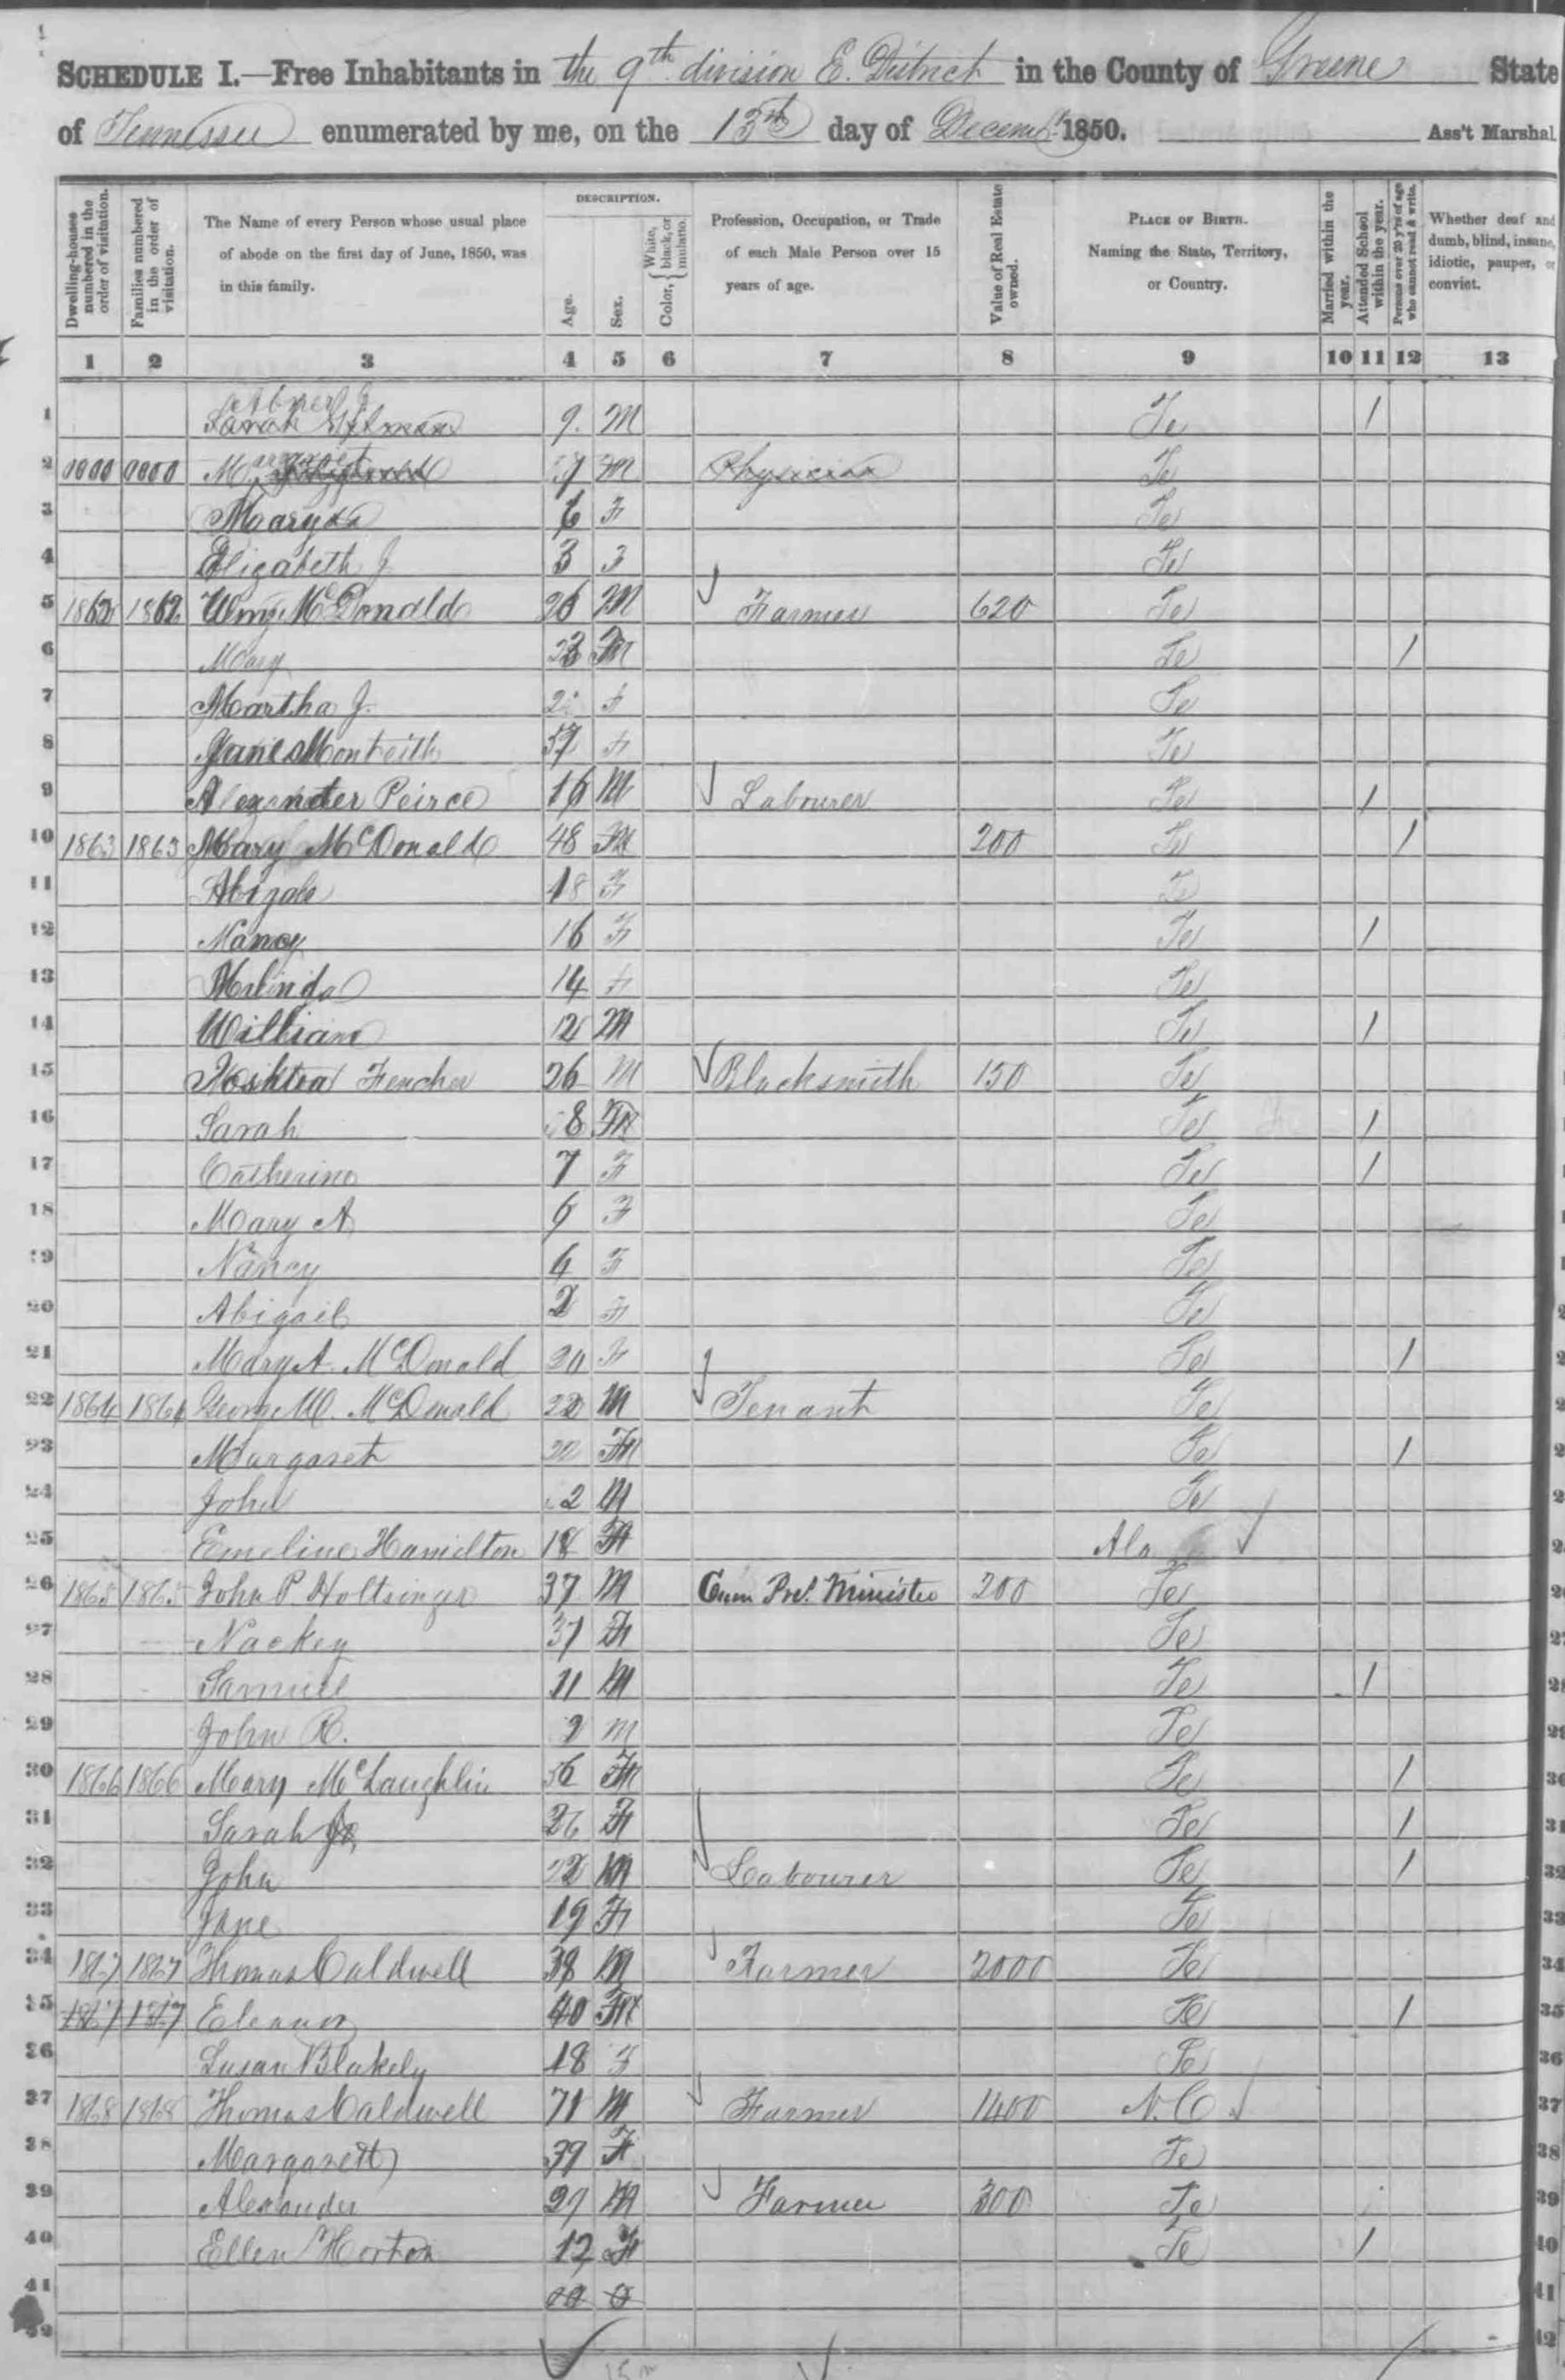 SCHEDULE I.—Free Inhabitants in the 9th division E. District in the County of Greene State
of Tennessee enumerated by me, on the 13th day of Decem 1850. Ass't Marshal
Dwelling-houses numbered in the order of visitation.
Families numbered in the order of visitation.
The Name of every Person whose usual place of abode on the first day of June, 1850, was in this family.
DESCRIPTION.
Age.
Sex.
Color, { White, black, or mulatto.
Profession, Occupation, or Trade of each Male Person over 15 years of age.
Value of Real Estate owned.
PLACE OF BIRTH. Naming the State, Territory, or Country.
Married within the year.
Attended School within the year.
Persons over 20 y'rs of age who cannot read & write.
Whether deaf and dumb, blind, insane, idiotic, pauper, or convict.
1 2 3 4 5 6 7 8 9 10 11 12 13
1 Abner J 9 M Te /
2 Margaret 7 Physician Te
3 Mary 6 F Te
4 Elizabeth J 3 F Te
5 1862 1862 McDonald 26 M Farmer 620 Te
6 Mary 23 F Te /
7 Martha J. 2 F Te
8 Jane Monteith 37 F Te
9 Alexander Peirce 16 M Labourer Te /
10 1863 1863 Mary McDonald 48 F 200 Te /
11 Abigale 18 F Te
12 Nancy 16 F Te /
13 Melinda 14 F Te
14 William 12 M Te /
15 26 M Blacksmith 150 Te
16 Sarah 8 F Te /
17 Catherine 7 F Te /
18 Mary A 6 F Te
19 Nancy 4 F Te
20 Abigail 2 F Te
21 Mary A. McDonald 20 F Te /
22 1864 1864 George W. McDonald 22 M Tenant Te
23 Margaret 20 F Te /
24 John 2 M Te
25 Emeline Hamilton 18 F Ala
26 1865 1865 John P Holtsinger 37 M Cum Pres. Minister 200 Te
27 Nackey 37 F Te
28 Samuel 11 M Te /
29 John R. 9 M Te
30 1866 1866 Mary McLaughlin 56 F Te /
31 Sarah 26 F Te /
32 John 22 M Labourer Te /
33 Jane 19 F Te
34 1867 1867 Thomas Caldwell 38 M Farmer 2000 Te
35 1867 1867 Eleanor 40 F Te /
36 Susan Blakely 18 F Te
37 1868 1868 Thomas Caldwell 71 M Farmer 1400 N.C.
38 Margarett 39 F Te
39 Alexander 27 M Farmer 300 Te
40 Ellen Horton 12 F Te /
41
42